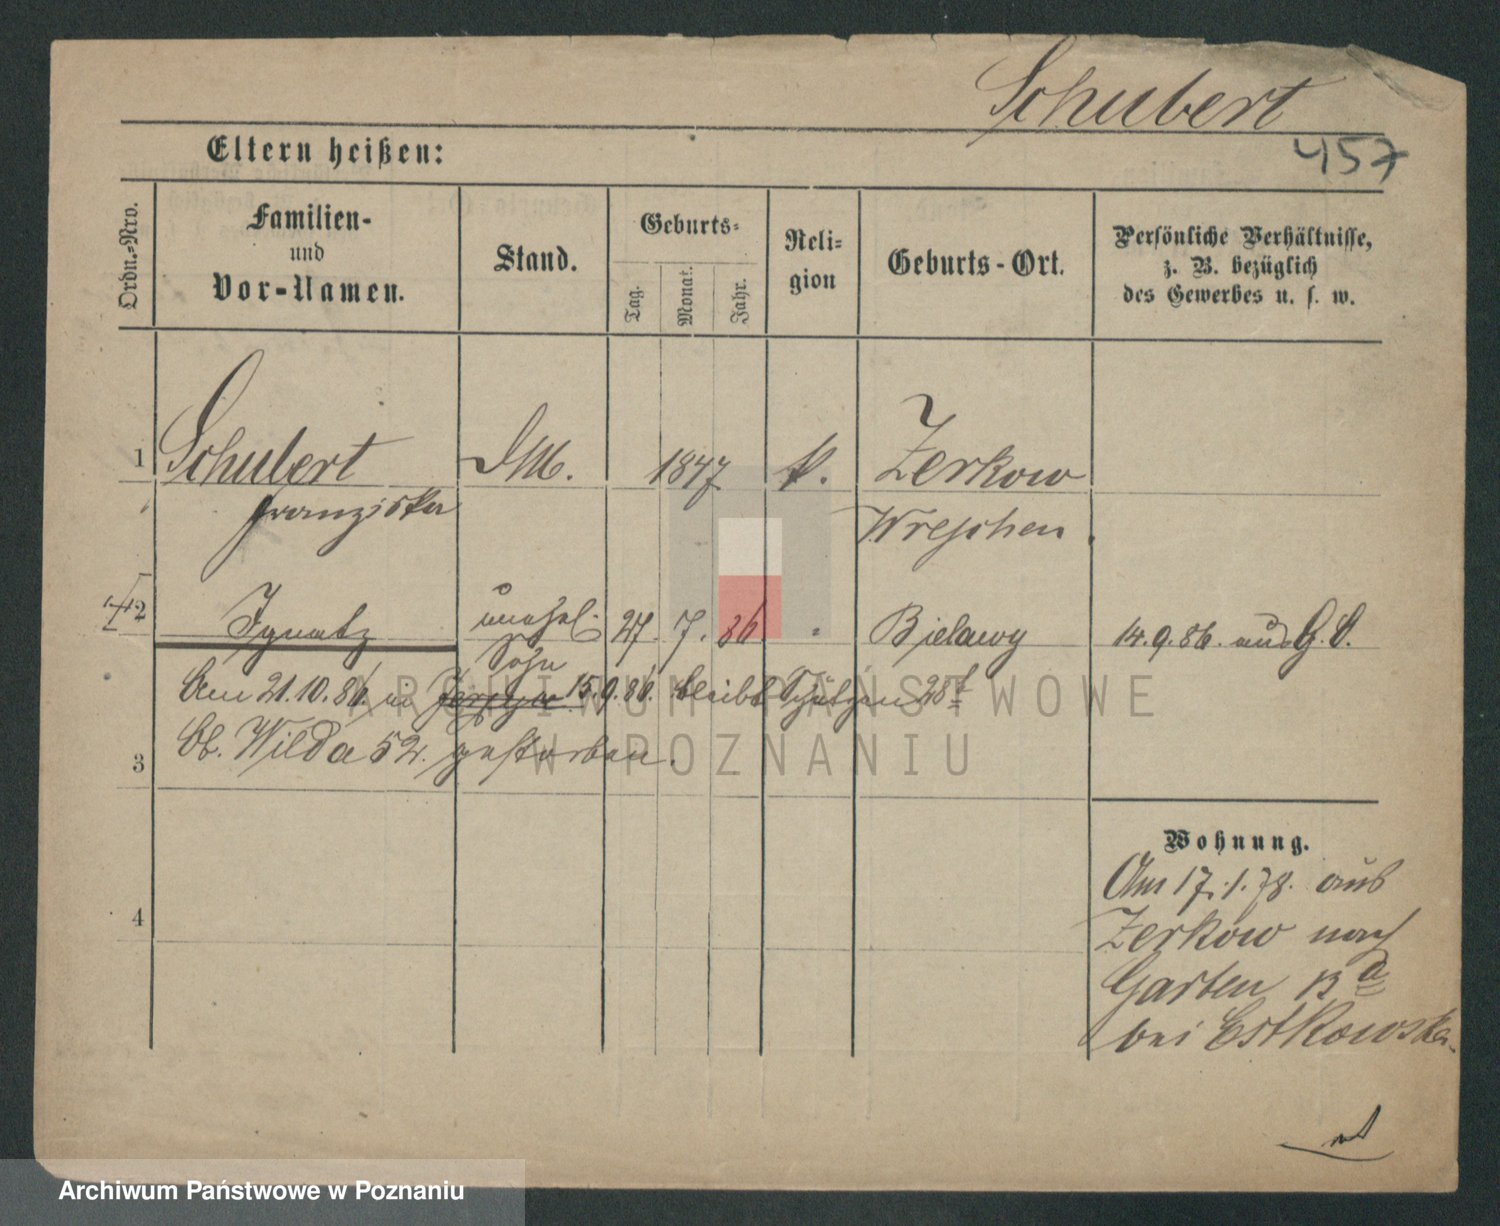 Schubert
457
Eltern heißen:
Ordn.-Nro.
Familien-
und
Vor-Namen.
Stand.
Geburts-
Tag.
Monat.
Jahr.
Reli-
gion
Geburts-Ort.
Persönliche Verhältnisse,
z. B. bezüglich
des Gewerbes u. s. w.
1 Schubert DM. 1847 k. Zerkow
Franziska Wreschen.
2 Ignatz unehel. 27. 7. 86 " Bielawy 14.9.86. aus G. S.
Sohn
Am 21.10.86 15.9.86. bleibt Schützen 28
3 Ob. Wilda 52. gestorben.
Wohnung.
Am 17.1.78. aus
4 Zerkow nach
Garten 13a
bei Estkowska.
ARCHIWUM PAŃSTWOWE
W POZNANIU
Archiwum Państwowe w Poznaniu